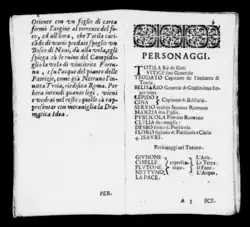 Oriente con un foglio di carta
formò l'argine al torrente del fer-
ro, ed all'hora, che Totila cari-
co di tante prede
Busto di Neni, dà alla
giù che le ruine del Campido-
glio la vola di vincitrice Fortu-
na, e su l'acque del pianto delle
Patrizie, come già Nettuno l'an-
tica Troia, riedifica Roma. Per
hora intendi quanto legi, vieni
e vedrai nel resto quello ti rap-
presentar con meraviglia la Dra-
matica Idea.
PER-
PERSONAGGI.
TOTILA Rè de Goti
VITIGE suo Generale
TEODATO Capitano de
Totila.
BELISARIO General di Giustiniano Im-
peratore
LEPIDO
CINNA
Capitani di Belisario.
SERVIO Senator Romano
MARZIA sua Figlia
PUBLICOLA Romano
CLELIA sua moglie
DESBO servo di Publicola
FLORO figliolo di Publicola e Clelia
4. ISAURI.
Personaggi nel Torneo.
GIUNONE
CIBELLE
PLUTONE
NETTUNO
LA PACE.
L'Aria.
La Terra.
Il Foco.
L'Acqua.
A 3
SCE-